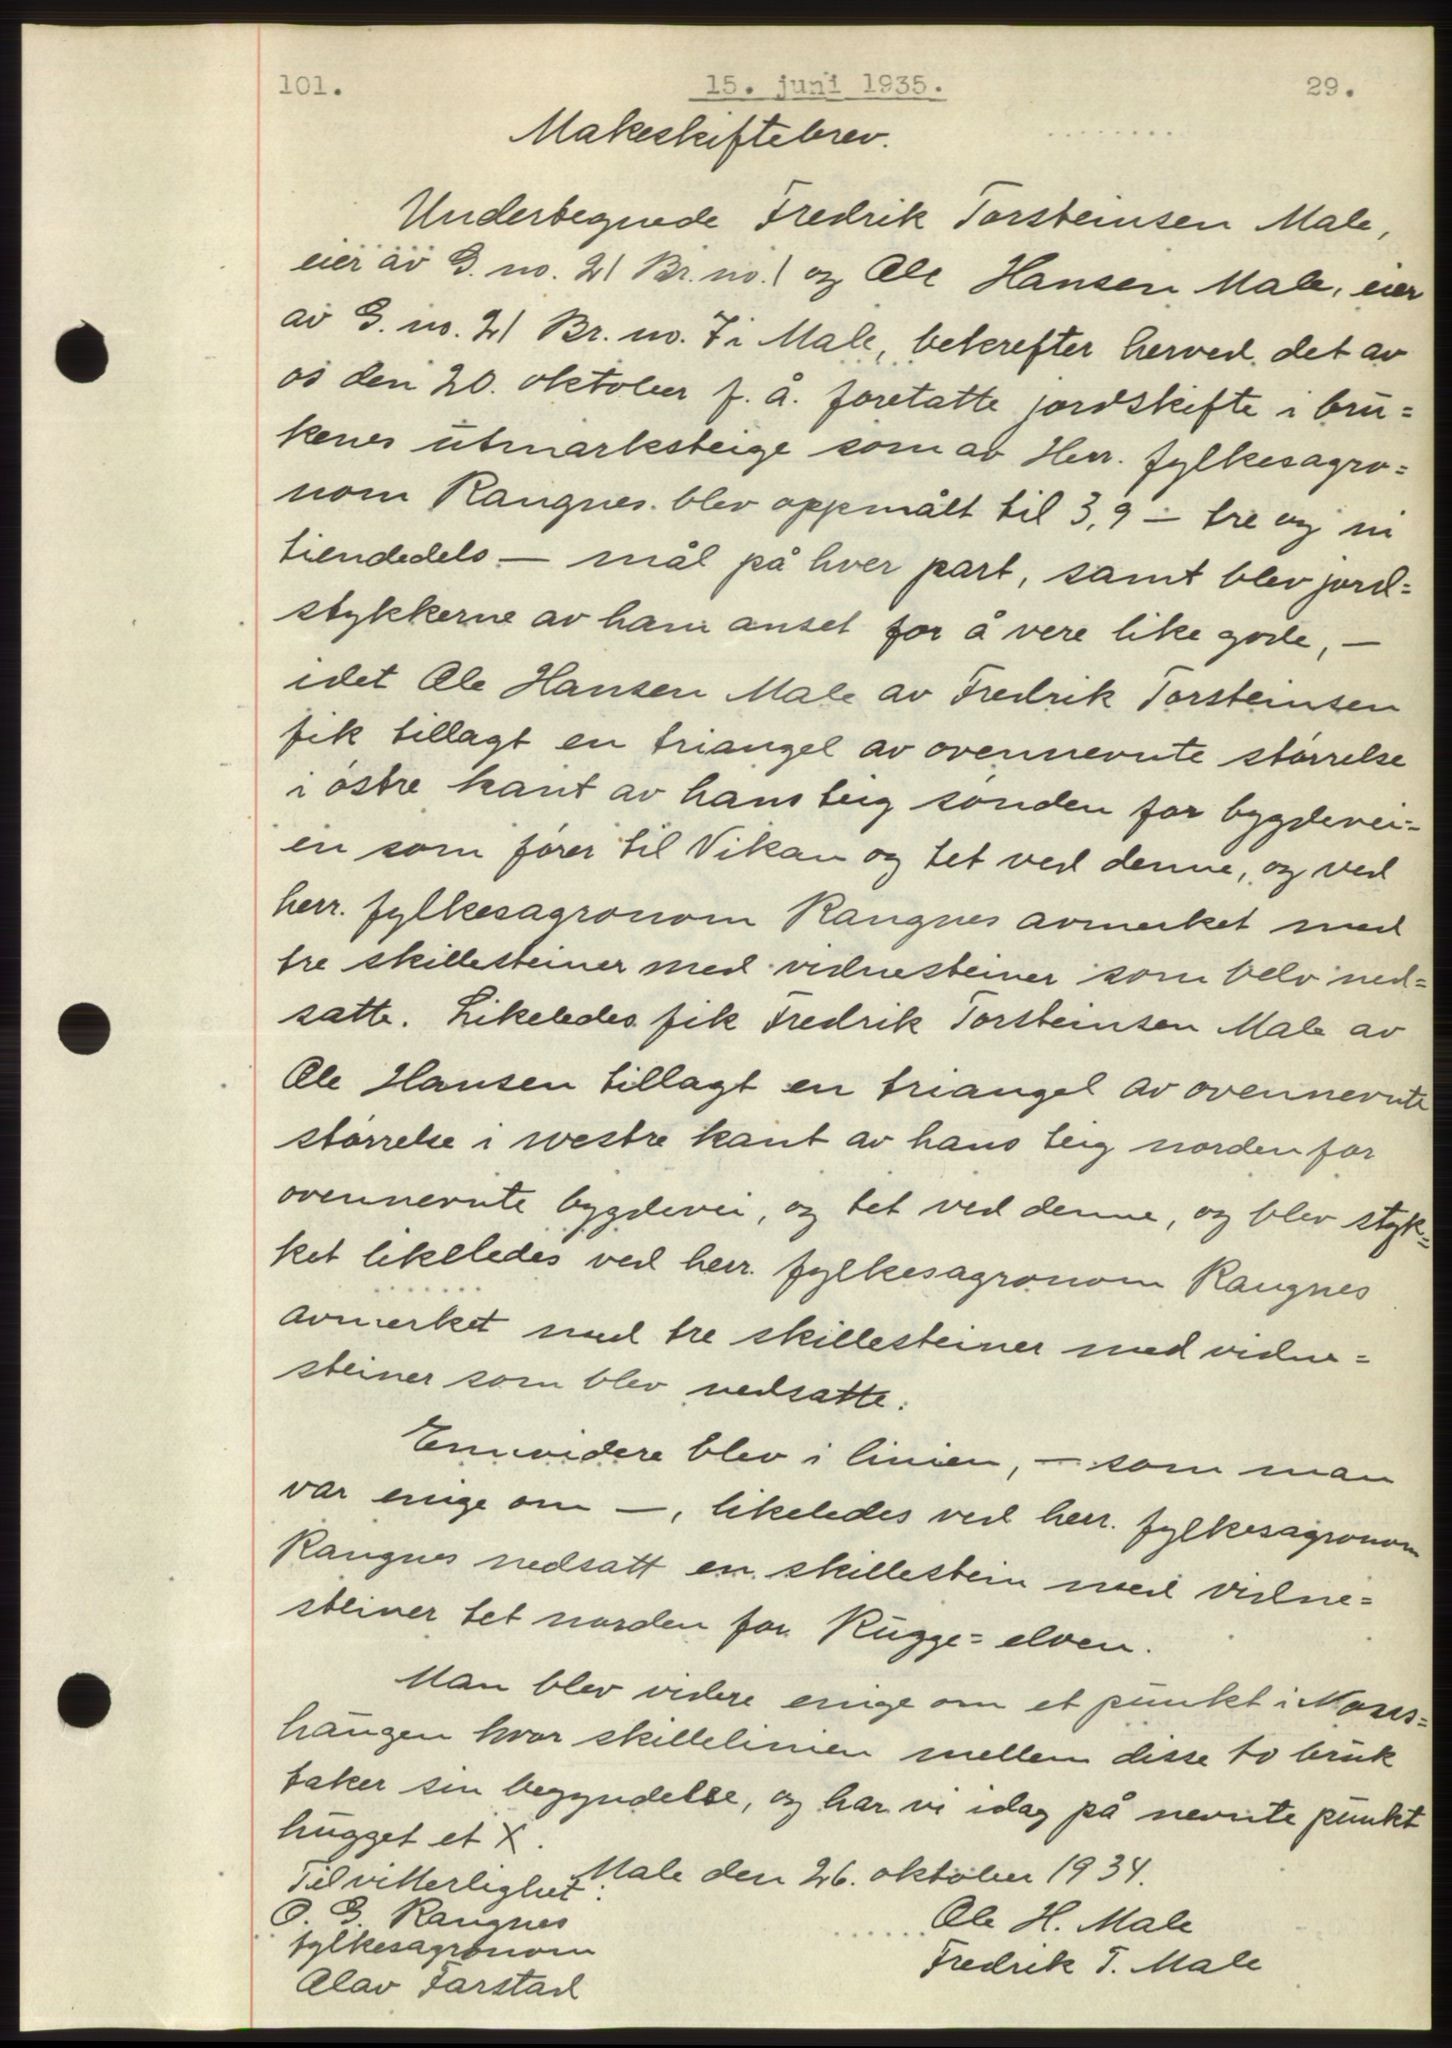 101. 15. juni 1935. 29.
Makeskiftebrev.
Undertegnede Fredrik Torsteinsen Male,
eier av G. no. 21 Br. no. 1 og Ole Hansen Male, eier
av G. no. 21 Br. no. 7 i Male, bekrefter herved det av
os den 20. oktober f. å. foretatte jordskifte i bru=
kenes utmarksteige som av Herr. fylkesagro=
nom Rangnes blev oppmålt til 3,9 — tre og ni
tiendedels — mål på hver part, samt blev jord=
stykkerne av ham anset for å vere like gode, —
idet Ole Hansen Male av Fredrik Torsteinsen
fik tillagt en triangel av ovennevnte størrelse
i østre kant av hans teig sønden for bygdevei=
en som fører til Vikan og tet ved denne, og ved
herr. fylkesagronom Rangnes avmerket med
tre skillesteiner med vidnesteiner som belv ned=
satte. Likeledes fik Fredrik Torsteinsen Male av
Ole Hansen tillagt en triangel av ovennevnte
størrelse i westre kant av hans teig norden for
ovennevnte bygdevei, og tet ved denne, og blev styk=
ket likelledes ved herr. fylkesagronom Rangnes
avmerket med tre skillesteiner med vidne=
steiner som blev nedsatte.
Ennvidere blev i linien, — som man
var enige om —, likeledes ved herr. fylkesagronom
Rangnes nedsatt en skillestein med vidne=
steiner tet norden for Rugge= elven.
Man blev videre enige om et punkt i Moses=
haugen hvor skillelinien mellem disse to bruk
taker sin begyndelse, og har vi idag på nevnte punkt
hugget et X.
Male den 26. oktober 1934.
Til vitterlighet:
O. G. Rangnes Ole H. Male
fylkesagronom Fredrik T. Male
Olav Farstad